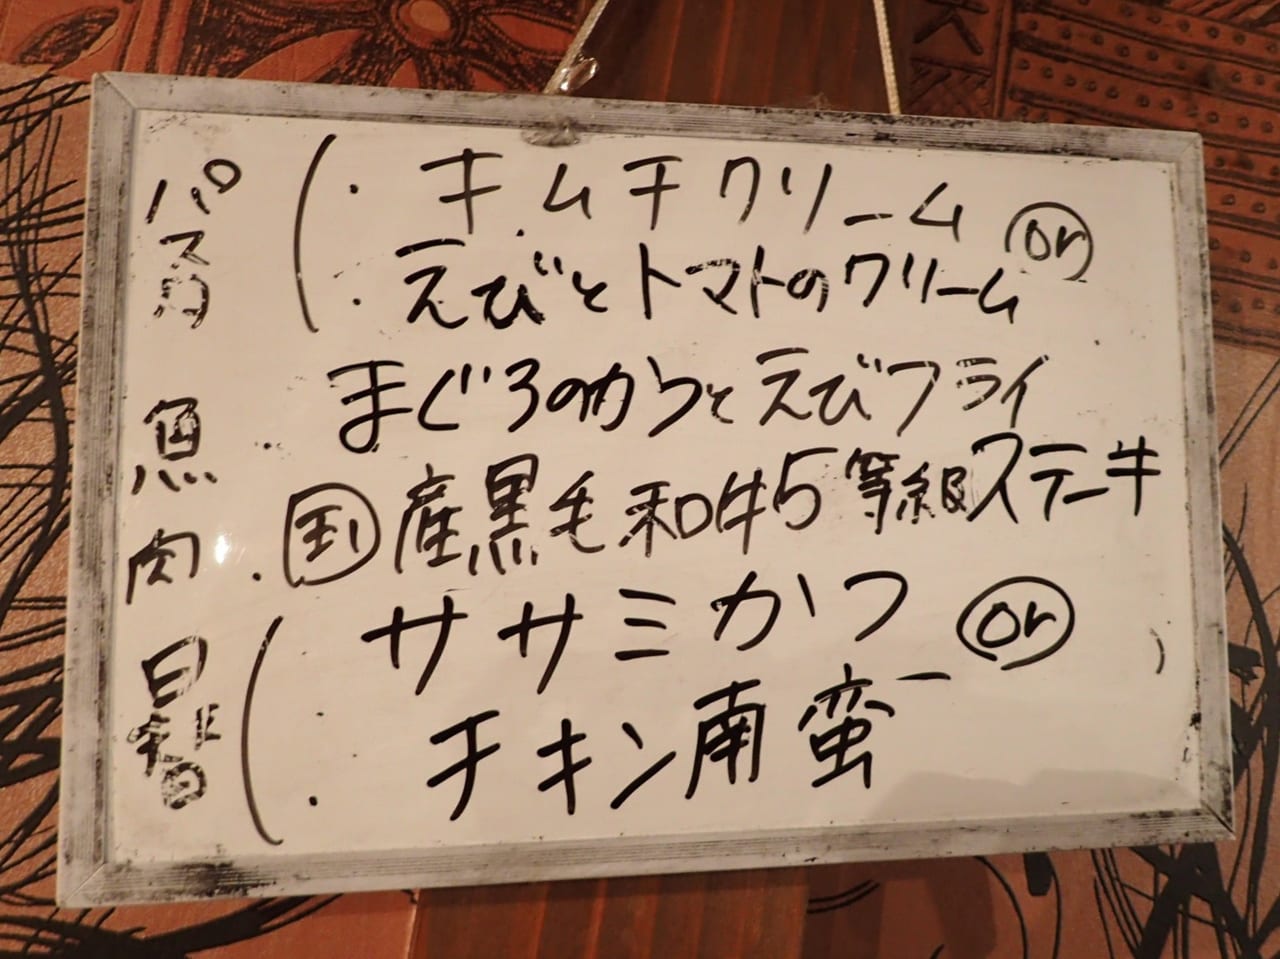 パスタ ・キムチクリーム or
・えびとトマトのクリーム
魚 まぐろのかつとえびフライ
肉 ・国産黒毛和牛5等級ステーキ
日替 ササミかつ or
・チキン南蛮